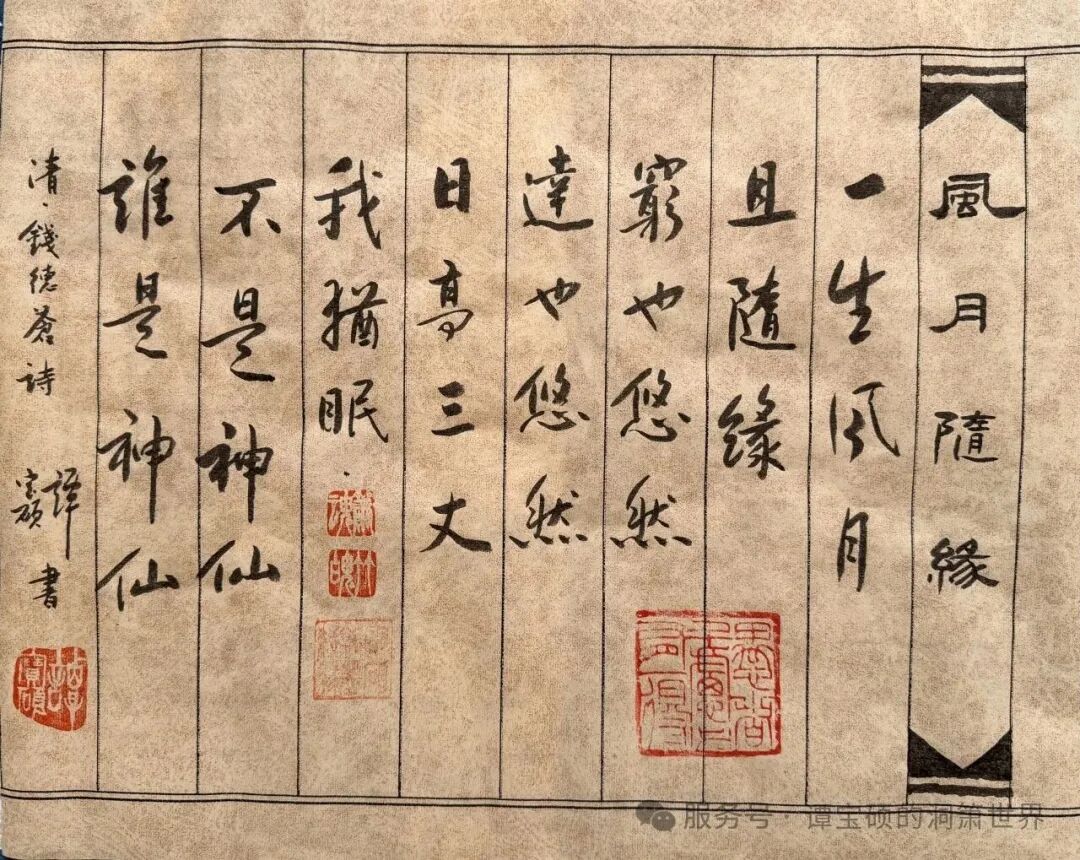 風月隨緣
一生风月
且隨緣
窮也悠然
達也悠然
日高三丈
我猶眠.
不是神仙
誰是神仙
清、錢德蒼詩 譚寶碩書
服务号·谭宝硕的洞箫世界